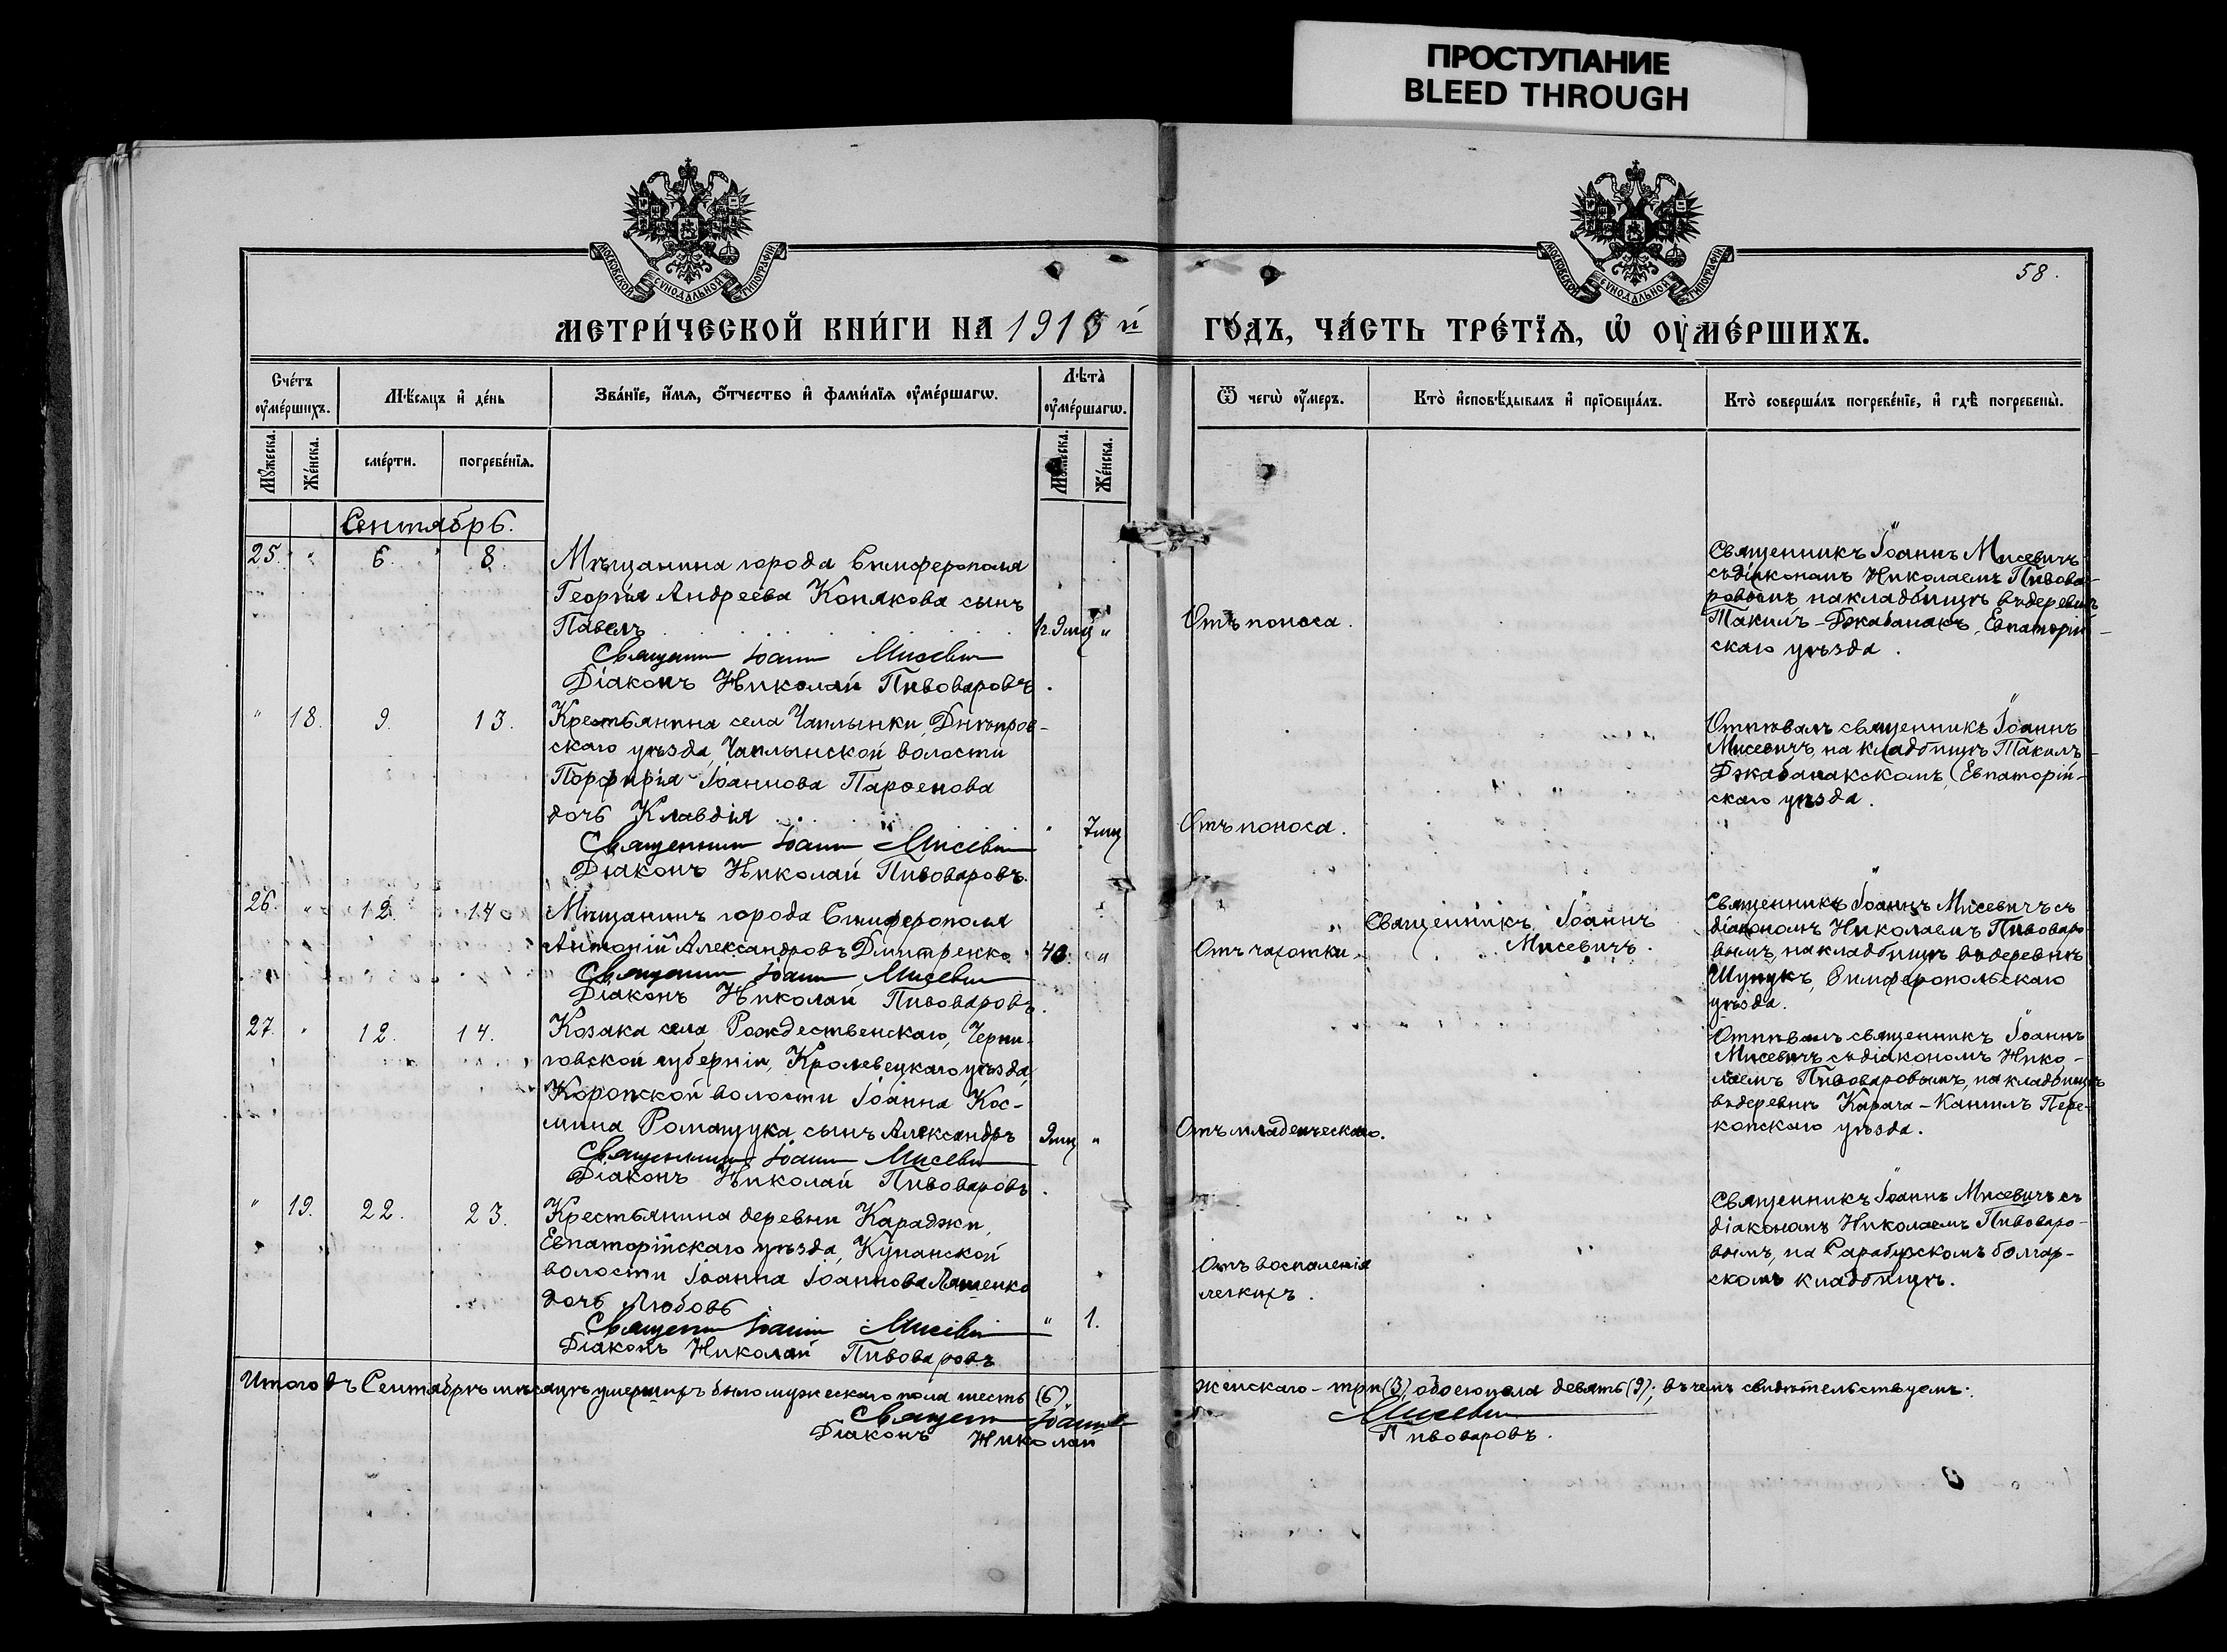 ПРОСТУПАНИЕ
BLEED THROUGH
МОСКОВСКОЙ СѴНОДАЛЬНОЙ ТИПОГРАФІИ
МОСКОВСКОЙ СѴНОДАЛЬНОЙ ТИПОГРАФІИ
58.
МЕТРИ́ЧЕСКОЙ КНИ́ГИ НА 1913 й
ГО́ДЪ, ЧА́СТЬ ТРЕ́ТЇѦ, Ѡ҆ ОУ҆МЕ́РШИХЪ.
Сче́тъ
оу҆ме́ршихъ.
Мѣ́сѧцъ и҆ де́нь
Зва́нїе, и҆́мѧ, ѻ҆́тчество и҆ фами́лїѧ оу҆ме́ршагѡ.
Лѣ̑та
оу҆ме́ршагѡ.
Ѿ чегѡ̀ оу҆́меръ.
Кто̀ и҆сповѣ́дывалъ и҆ прїѡбща́лъ.
Кто̀ соверша́лъ погребе́нїе, и҆ гдѣ̀ погребены̀.
Мꙋ́жеска.
Же́нска.
сме́рти.
погребе́нїѧ.
Мꙋ́жеска.
Же́нска.
Сентябрь.
25. " 6. 8. Мѣщанина города Симферополя
Георгія Андреева Конякова сынъ
Павелъ 1г. 9мц "
Священник Іоанн Мисевич
Діаконъ Николай Пивоваровъ.
Отъ поноса.
Священникъ Іоаннъ Мисевичъ
съ діакономъ Николаемъ Пивова-
ровымъ на кладбищѣ въ деревнѣ
Такилъ-Джабанакъ, Евпаторій-
скаго уѣзда.
" 18. 9. 13. Крестьянина села Чаплынки, Днѣпров-
скаго уѣзда, Чаплынской волости
Порфирія Іоаннова Парѳенова
дочь Клавдія " 7мц
Священник Іоанн Мисевич
Діаконъ Николай Пивоваровъ.
Отъ поноса.
Отпѣвалъ священникъ Іоаннъ
Мисевичъ, на кладбищѣ Такилъ-
Джабанакскомъ, Евпаторій-
скаго уѣзда.
26. " 12. 14. Мѣщанинъ города Симферополя
Антоній Александровъ Дмитренко 40. "
Священник Іоанн Мисевич
Діаконъ Николай Пивоваровъ.
Отъ чахотки.
Священникъ Іоаннъ
Мисевичъ.
Священникъ Іоаннъ Мисевичъ съ
діакономъ Николаемъ Пивоваро-
вымъ, на кладбищѣ въ деревнѣ
Шунукъ, Симферопольскаго
уѣзда.
27. " 12. 14. Козака села Рождественскаго, Черни-
говской губерніи, Кролевецкаго уѣзда,
Коропской волости Іоанна Кос-
мина Ромащука сынъ Александръ 9мц "
Священник Іоанн Мисевич
Діаконъ Николай Пивоваровъ.
Отъ младенческаго.
Отпѣвалъ священникъ Іоаннъ
Мисевичъ съ діакономъ Нико-
лаемъ Пивоваровымъ, на кладбищѣ
въ деревнѣ Карача-Кангилъ Пере-
копскаго уѣзда.
" 19. 22. 23. Крестьянина деревни Караджи,
Евпаторійскаго уѣзда, Кунанской
волости Іоанна Іоаннова Ляшенко
дочь Любовь " 1.
Священник Іоанн Мисевич
Діаконъ Николай Пивоваровъ
Отъ воспаленія
легкихъ.
Священникъ Іоаннъ Мисевичъ съ
діакономъ Николаемъ Пивоваро-
вымъ, на Сарабузскомъ болгар-
скомъ кладбищѣ.
Итого въ Сентябрѣ мѣсяцѣ умершихъ было мужескаго пола шесть (6) женскаго - три (3), обоего пола девять (9); въ чемъ свидѣтельствуемъ:
Священ Іоаннъ Мисевич
Діаконъ Николай Пивоваровъ.